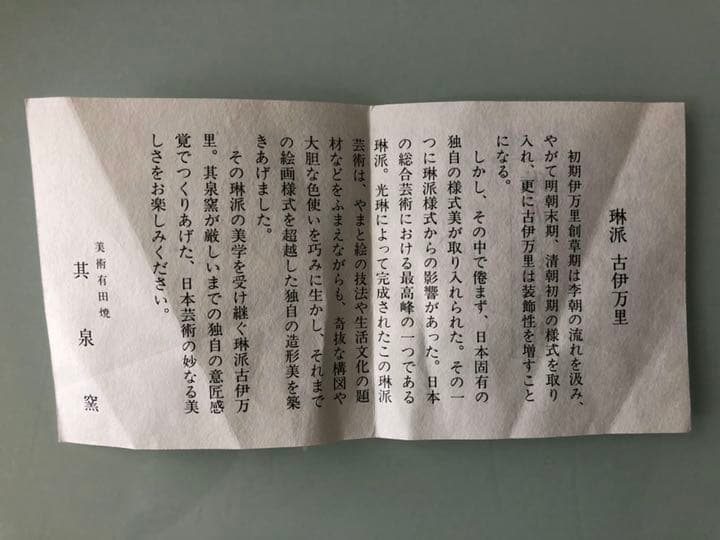 琳派 古伊万里
初期伊万里創草期は李朝の流れを汲み、
やがて明朝末期、清朝初期の様式を取り
入れ、更に古伊万里は装飾性を増すこと
になる。
しかし、その中で倦まず、日本固有の
独自の様式美が取り入れられた。その一
つに琳派様式からの影響があった。日本
の総合芸術における最高峰の一つである
琳派。光琳によって完成されたこの琳派
芸術は、やまと絵の技法や生活文化の題
材などをふまえながらも、奇抜な構図や
大胆な色使いを巧みに生かし、それまで
の絵画様式を超越した独自の造形美を築
きあげました。
その琳派の美学を受け継ぐ琳派古伊万
里。其泉窯が厳しいまでの独自の意匠感
覚でつくりあげた、日本芸術の妙なる美
しさをお楽しみください。
美術有田焼
其泉窯